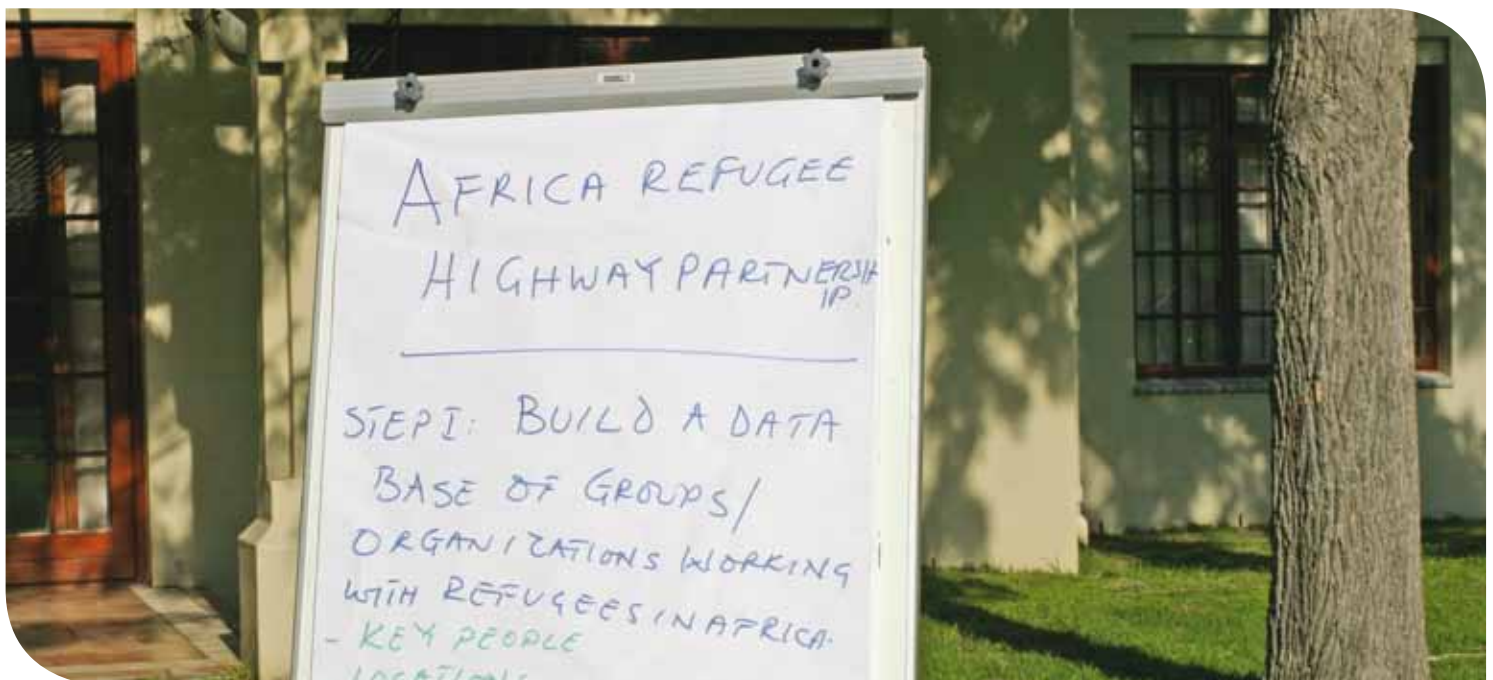 AFRICA REFUGEE
HIGHWAY PARTNERSH
IP.
STEP I: BUILD A DATA
BASE OF GROUPS/
ORGANIZATIONS WORKING
WITH REFUGEES IN AFRICA.
- KEY PEOPLE
LOCATIONS